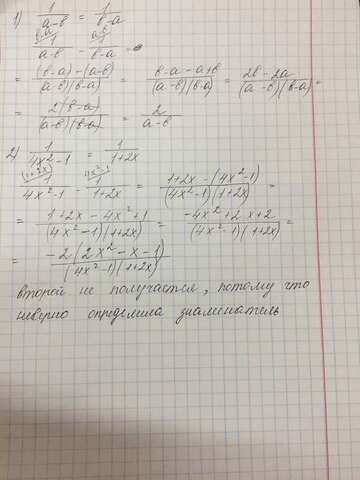 1) 1/(a-b) = 1/(b-a)
(b-a)/1/(a-b) - (a-b)/1/(b-a) =
= ((b-a)-(a-b))/((a-b)(b-a)) = (b-a-a+b)/((a-b)(b-a)) = (2b-2a)/((a-b)(b-a)) =
= 2(b-a)/((a-b)(b-a)) = 2/(a-b)
2) 1/(4x²-1) = 1/(1+2x)
(1+2x)/1/(4x²-1) - (4x²-1)/1/(1+2x) = (1+2x-(4x²-1))/((4x²-1)(1+2x)) =
= (1+2x-4x²+1)/((4x²-1)(1+2x)) = (-4x²+2x+2)/((4x²-1)(1+2x)) =
= -2(2x²-x-1)/((4x²-1)(1+2x))
второй не получается, потому что
неверно определила знаменатель